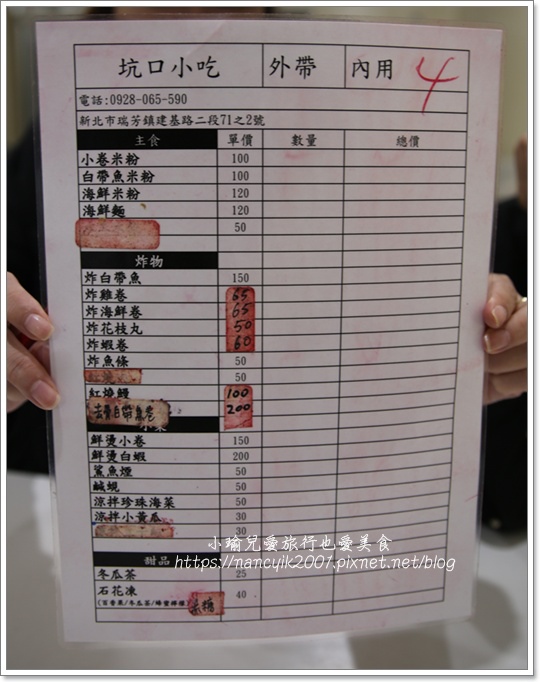 坑口小吃 外帶 內用 4
電話:0928-065-590
新北市瑞芳鎮建基路二段71之2號
主食 單價 數量 總價
小卷米粉 100
白帶魚米粉 100
海鮮米粉 120
海鮮麵 120
50
炸物
炸白帶魚 150
炸雞卷 65
炸海鮮卷 65
炸花枝丸 50
炸蝦卷 60
炸魚條 50
50
紅燒鰻 100
去骨白帶魚卷 200
鮮燙小卷 150
鮮燙白蝦 200
鯊魚煙 50
鹹蜆 50
涼拌珍珠海菜 50
涼拌小黃瓜 30
30
甜品
冬瓜茶 25
石花凍 40
(百香果/冬瓜茶/蜂蜜檸檬)
小瑜兒愛旅行也愛美食
https://nancyik2001.pixnet.net/blog